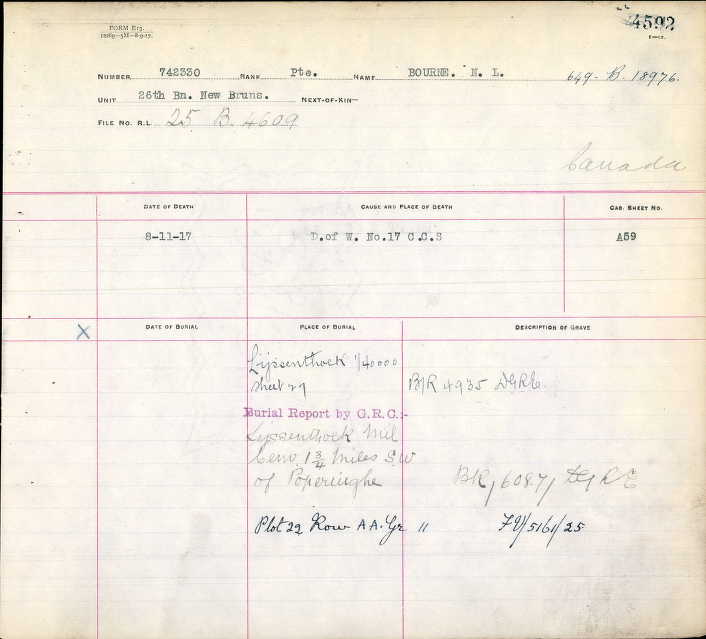 FORM E13.
4592
NUMBER 742330 RANK Pte. NAME BOURNE. N. L. 649-B.18976.
UNIT 26th Bn. New Bruns. NEXT-OF-KIN
FILE NO. R.L. 25 B. 4609
Canada
DATE OF DEATH CAUSE AND PLACE OF DEATH CAS. SHEET NO.
8-11-17 D.of W. No.17 C.C.S A59
X DATE OF BURIAL PLACE OF BURIAL DESCRIPTION OF GRAVE
Lijssenthoek 1/40000
Sheet 27 B/R 4935 DGR&E
Burial Report by G.R.C:-
Lijssenthoek Mil
Cem. 1 3/4 Miles S.W
of Poperinghe BR/6087/DGR&E
Plot 22 Row AA. Gr 11